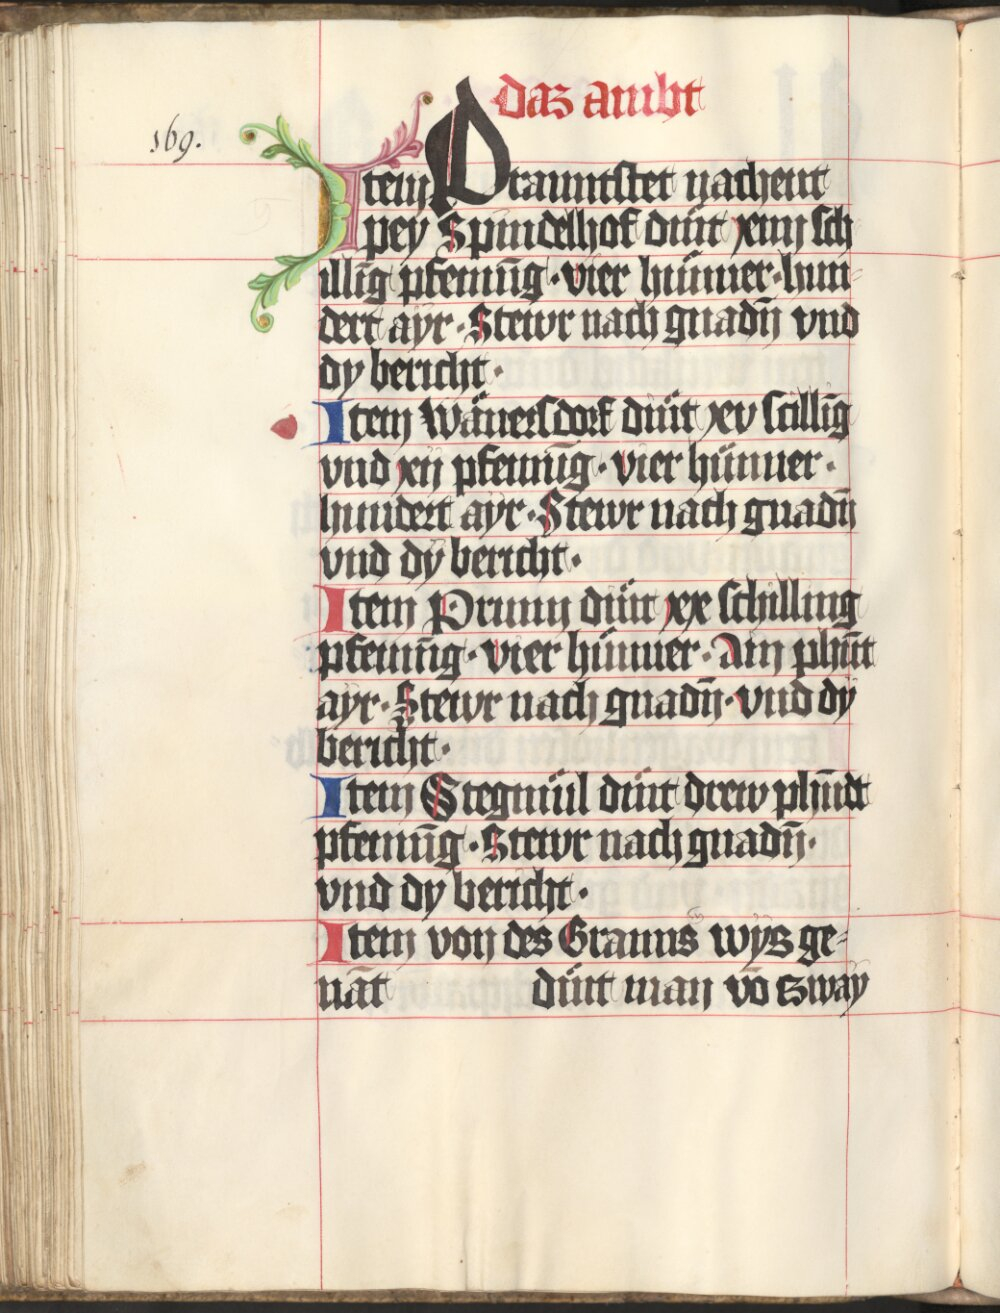 das ambt
169.
Item Prauntstet nachent
pey Spindelhof dint xviij sch
illīg pfennīg · vier hünner · hun-
dert ayr · Stewr nach gnadn̄ vnd
dy bericht ·
Item Wänersdorf dint xv scillīg
vnd xij pfennīg · vier hünner ·
hundert ayr · Stewr nach gnadn̄
vnd dy bericht ·
Item Prunn dint xx schilling
pfennīg · vier hünner · Ain phūt
ayr · Stewr nach gnadn̄ · vnd dy
bericht ·
Item Stegmül dint drew phūdt
pfennīg · Stewr nach gnadn̄ ·
vnd dy bericht ·
Item von des Grauns wys ge-
nāt dint man vō zway